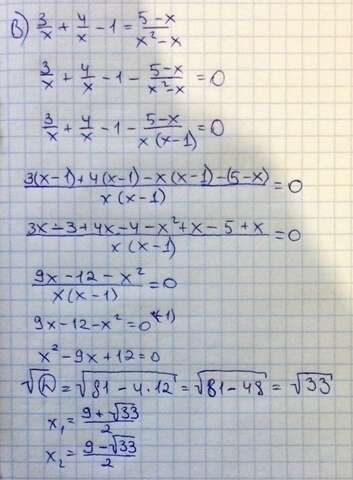 В) 3/x + 4/x − 1 = (5−x)/(x²−x)
3/x + 4/x − 1 − (5−x)/(x²−x) = 0
3/x + 4/x − 1 − (5−x)/(x(x−1)) = 0
(3(x−1)+4(x−1)−x(x−1)−(5−x))/(x(x−1)) = 0
(3x−3+4x−4−x²+x−5+x)/(x(x−1)) = 0
(9x−12−x²)/(x(x−1)) = 0
9x−12−x² = 0 *(−1)
x²−9x+12=0
√D = √(81−4·12) = √(81−48) = √33
x₁ = (9+√33)/2
x₂ = (9−√33)/2